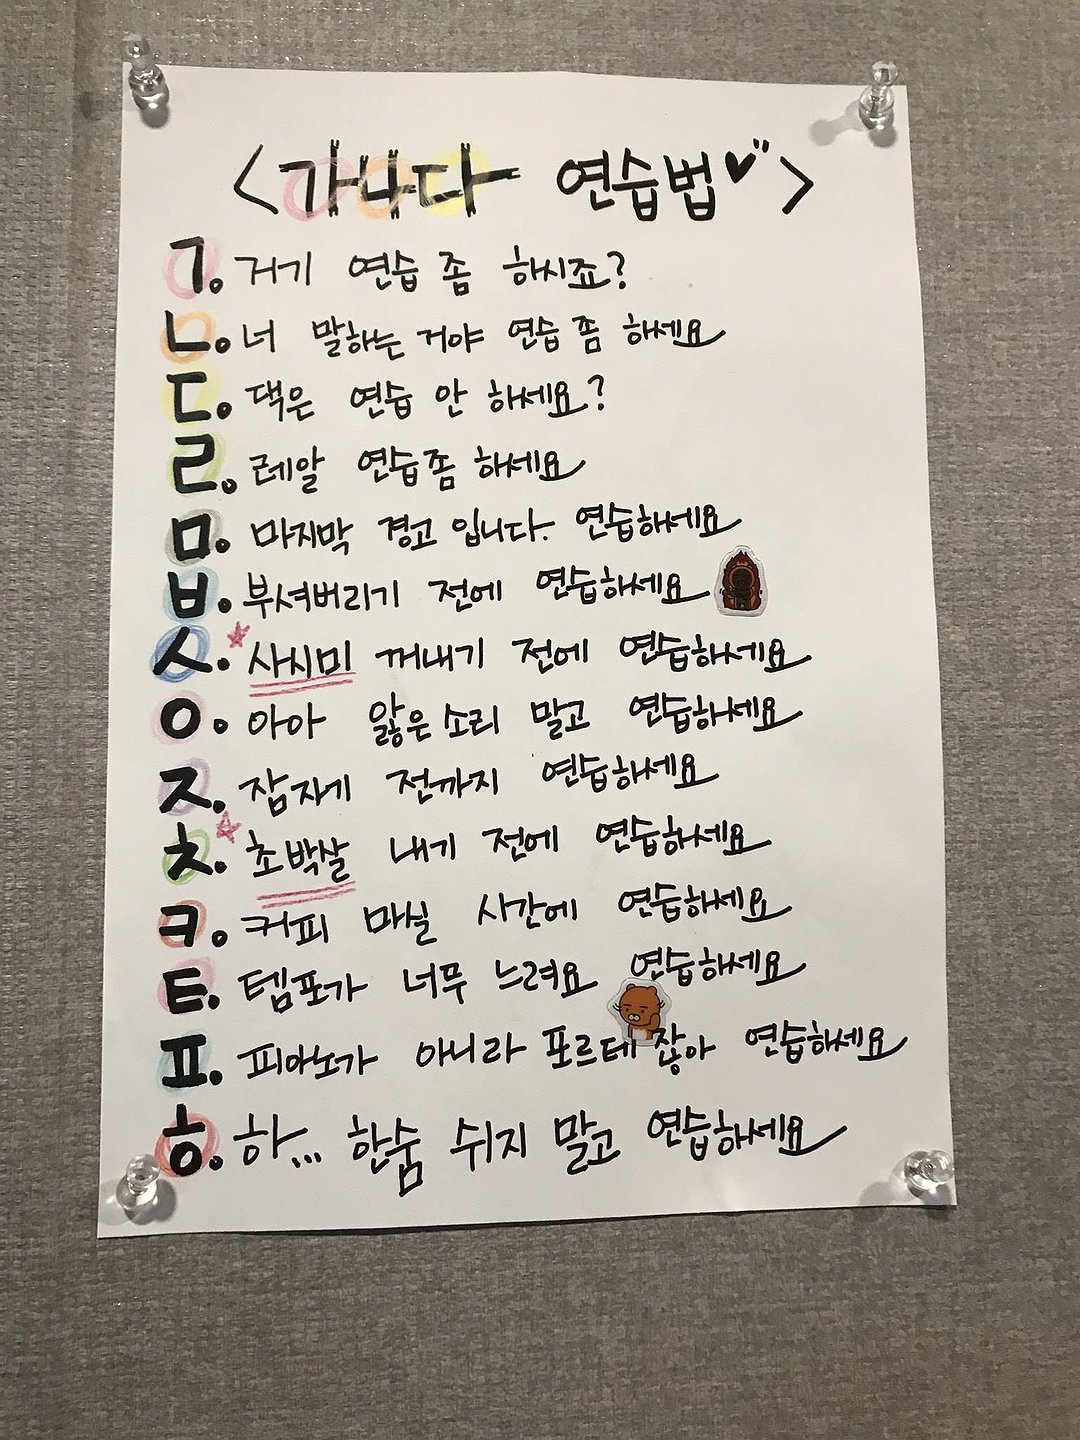 <가나다 연습법♥>
ㄱ. 거기 연습 좀 하시죠?
ㄴ. 너 말하는 거야 연습 좀 하세요
ㄷ. 댁은 연습 안 하세요?
ㄹ. 레알 연습좀 하세요
ㅁ. 마지막 경고 입니다. 연습하세요
ㅂ. 부셔버리기 전에 연습하세요
ㅅ. 사시미 꺼내기 전에 연습하세요
ㅇ. 아아 앓은소리 말고 연습하세요
ㅈ. 잠자기 전까지 연습하세요
ㅊ. 초박살 내기 전에 연습하세요
ㅋ. 커피 마실 시간에 연습하세요
ㅌ. 템포가 너무 느려요 연습하세요
ㅍ. 피아노가 아니라 포르테 잖아 연습하세요
ㅎ. 하... 한숨 쉬지 말고 연습하세요